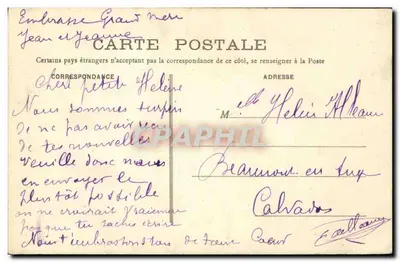 Embrasse Grand mere
Jean et Jeanne
CARTE POSTALE
Certains pays étrangers n'acceptant pas la correspondance de ce côté, se renseigner à la Poste
CORRESPONDANCE
ADRESSE
Chère petite Helene
Nous sommes surpris
de ne pas avoir reçu
de tes nouvelles
veuille donc nous
en envoyer le
plustôt possible
on ne croirait vraiment
pas que tu saches écrire
Nous t'embrassons tous de tout Coeur
M elle Helene
Beaumont en Auge
Calvados
CPAPHIL.COM